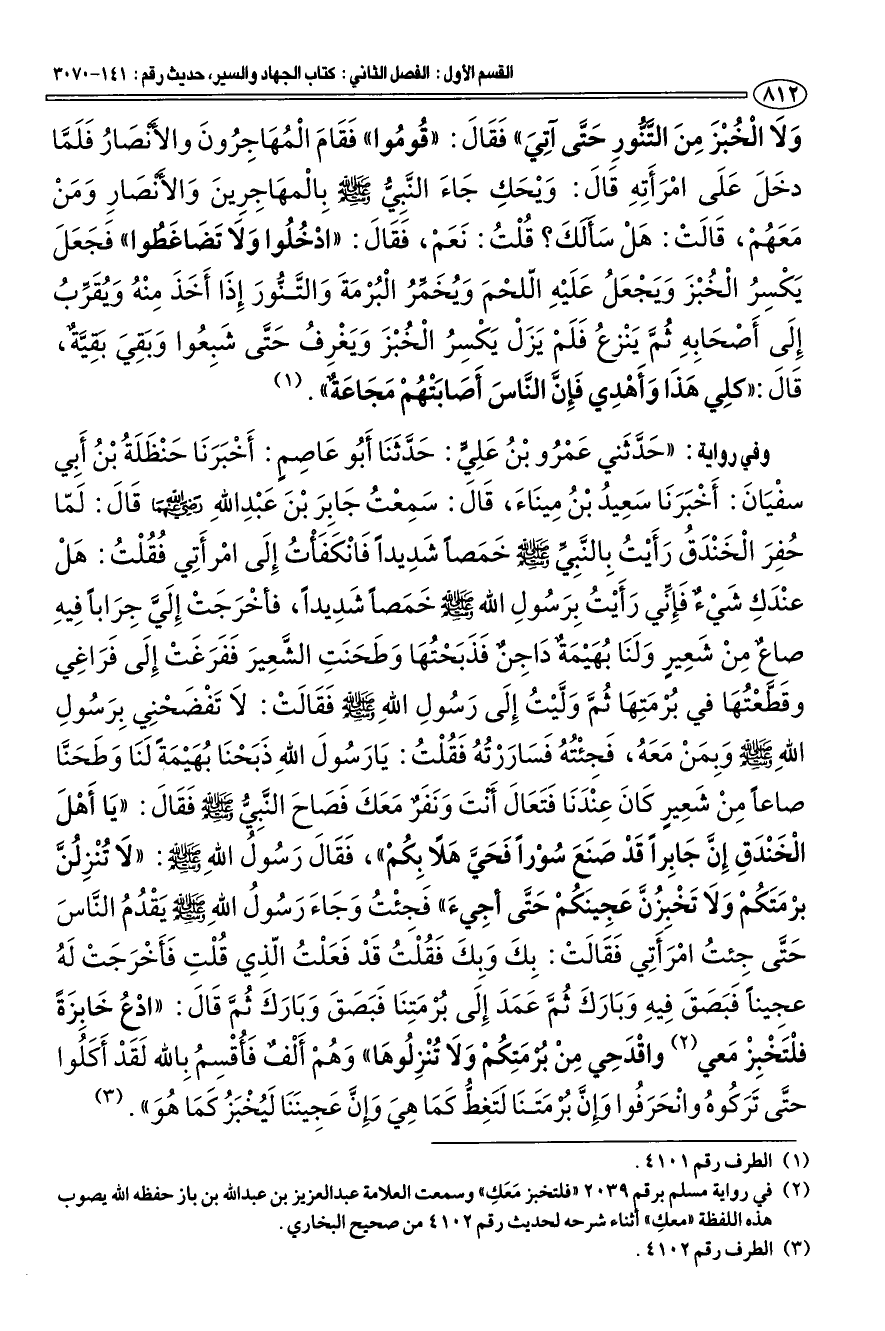 القسم الأول: الفصل الثاني: كتاب الجهاد والسير، حديث رقم: ١٤١-٣٠٧٠
٨١٢
وَلَا الْخُبْزَ مِنَ التَّنُّورِ حَتَّى آتِيَ» فَقَالَ: «قُومُوا» فَقَامَ الْمُهَاجِرُونَ والأَنْصَارُ فَلَمَّا
دخَلَ عَلَى امْرَأَتِهِ قَالَ: وَيْحَكِ جَاءَ النَّبِيُّ ﷺ بِالْمهَاجِرِينَ وَالأَنْصَارِ وَمَنْ
مَعَهُمْ، قَالَتْ: هَلْ سَأَلَكَ؟ قُلْتُ: نَعَمْ، فَقَالَ: «ادْخُلُوا وَلَا تَضَاغَطُوا» فَجَعَلَ
يَكْسِرُ الْخُبْزَ وَيَجْعَلُ عَلَيْهِ اللّحْمَ وَيُخَمِّرُ الْبُرْمَةَ وَالتَّنُّورَ إِذَا أَخَذَ مِنْهُ وَيُقَرِّبُ
إِلَى أَصْحَابِهِ ثُمَّ يَنْزِعُ فَلَمْ يَزَلْ يَكْسِرُ الْخُبْزَ وَيَغْرِفُ حَتَّى شَبِعُوا وَبَقِيَ بَقِيَّةٌ،
قَالَ: «كلِي هَذَا وَأَهْدِي فَإِنَّ النَّاسَ أَصَابَتْهُمْ مَجَاعَةٌ». (١)
وفي رواية: «حَدَّثَني عَمْرُو بْنُ عَلِيٍّ: حَدَّثَنَا أَبُو عَاصِمٍ: أَخْبَرَنَا حَنْظَلَةُ بْنُ أَبِي
سفْيَانَ: أَخْبَرَنَا سَعِيدُ بْنُ مِينَاءَ، قَالَ: سَمِعْتُ جَابِرَ بْنَ عَبْدِاللهِ رضي الله عنهما قَالَ: لَمّا
حُفِرَ الْخَنْدَقُ رَأَيْتُ بِالنَّبِيِّ ﷺ خَمَصاً شَدِيداً فَانْكَفَأْتُ إِلَى امْرأَتِي فَقُلْتُ: هَلْ
عنْدَكِ شَيْءٌ فَإِنِّي رَأَيْتُ بِرَسُولِ الله ﷺ خَمَصاً شَدِيداً، فأخْرَجَتْ إِلَيَّ جِرَاباً فِيهِ
صاعٌ مِنْ شَعِيرٍ وَلَنَا بُهَيْمَةٌ دَاجِنٌ فَذَبَحْتُهَا وَطَحَنَتِ الشَّعِيرَ فَفَرَغَتْ إِلَى فَرَاغِي
وقَطَّعْتُهَا في بُرْمَتِهَا ثُمَّ وَلَّيْتُ إِلَى رَسُولِ اللهِ ﷺ فَقَالَتْ: لَا تَفْضَحْنِي بِرَسُولِ
اللهِ ﷺ وَبِمَنْ مَعَهُ، فَجِئْتُهُ فَسَارَرْتُهُ فَقُلْتُ: يَارَسُولَ اللهِ ذَبَحْنَا بُهَيْمَةً لَنَا وَطَحَنَّا
صاعاً مِنْ شَعِيرٍ كَانَ عِنْدَنَا فَتَعَالَ أَنْتَ وَنَفَرٌ مَعَكَ فَصَاحَ النَّبِيُّ ﷺ فَقَالَ: «يَا أَهْلَ
الْخَنْدَقِ إِنَّ جَابِراً قَدْ صَنَعَ سُوْراً فَحَيَّ هَلاً بِكُمْ»، فَقَالَ رَسُولُ اللهِ ﷺ: «لَا تُنْزِلُنَّ
برْمَتَكُمْ وَلَا تَخْبِزُنَّ عَجِينَكُمْ حَتَّى أجِيءَ» فَجِئْتُ وَجَاءَ رَسُولُ اللهِ ﷺ يَقْدُمُ النَّاسَ
حَتَّى جِئتُ امْرَأَتِي فَقَالَتْ: بِكَ وَبِكَ فَقُلْتُ قَدْ فَعَلْتُ الّذِي قُلْتِ فَأَخْرَجَتْ لَهُ
عجِيناً فَبَصَقَ فِيهِ وَبَارَكَ ثُمَّ عَمَدَ إِلَى بُرْمَتِنَا فَبَصَقَ وَبَارَكَ ثُمَّ قَالَ: «ادْعُ خَابِزَةً
فلْتَخْبِزْ مَعي(٢) واقْدَحِي مِنْ بُرْمَتِكُمْ وَلَا تُنْزِلُوهَا» وَهُمْ أَلْفٌ فَأُقْسِمُ بِالله لَقَدْ أَكَلُوا
حتَّى تَرَكُوهُ وانْحَرَفُوا وَإِنَّ بُرْمَتَنَا لَتَغِطُّ كَمَا هِيَ وَإِنَّ عَجِينَنَا لَيُخْبَزُ كَمَا هُوَ». (٣)
(١) الطرف رقم ٤١٠١.
(٢) في رواية مسلم برقم ٢٠٣٩ «فلتخبز مَعَكِ» وسمعت العلامة عبدالعزيز بن عبدالله بن باز حفظه الله يصوب
هذه اللفظة «معكِ» أثناء شرحه لحديث رقم ٤١٠٢ من صحيح البخاري.
(٣) الطرف رقم ٤١٠٢.